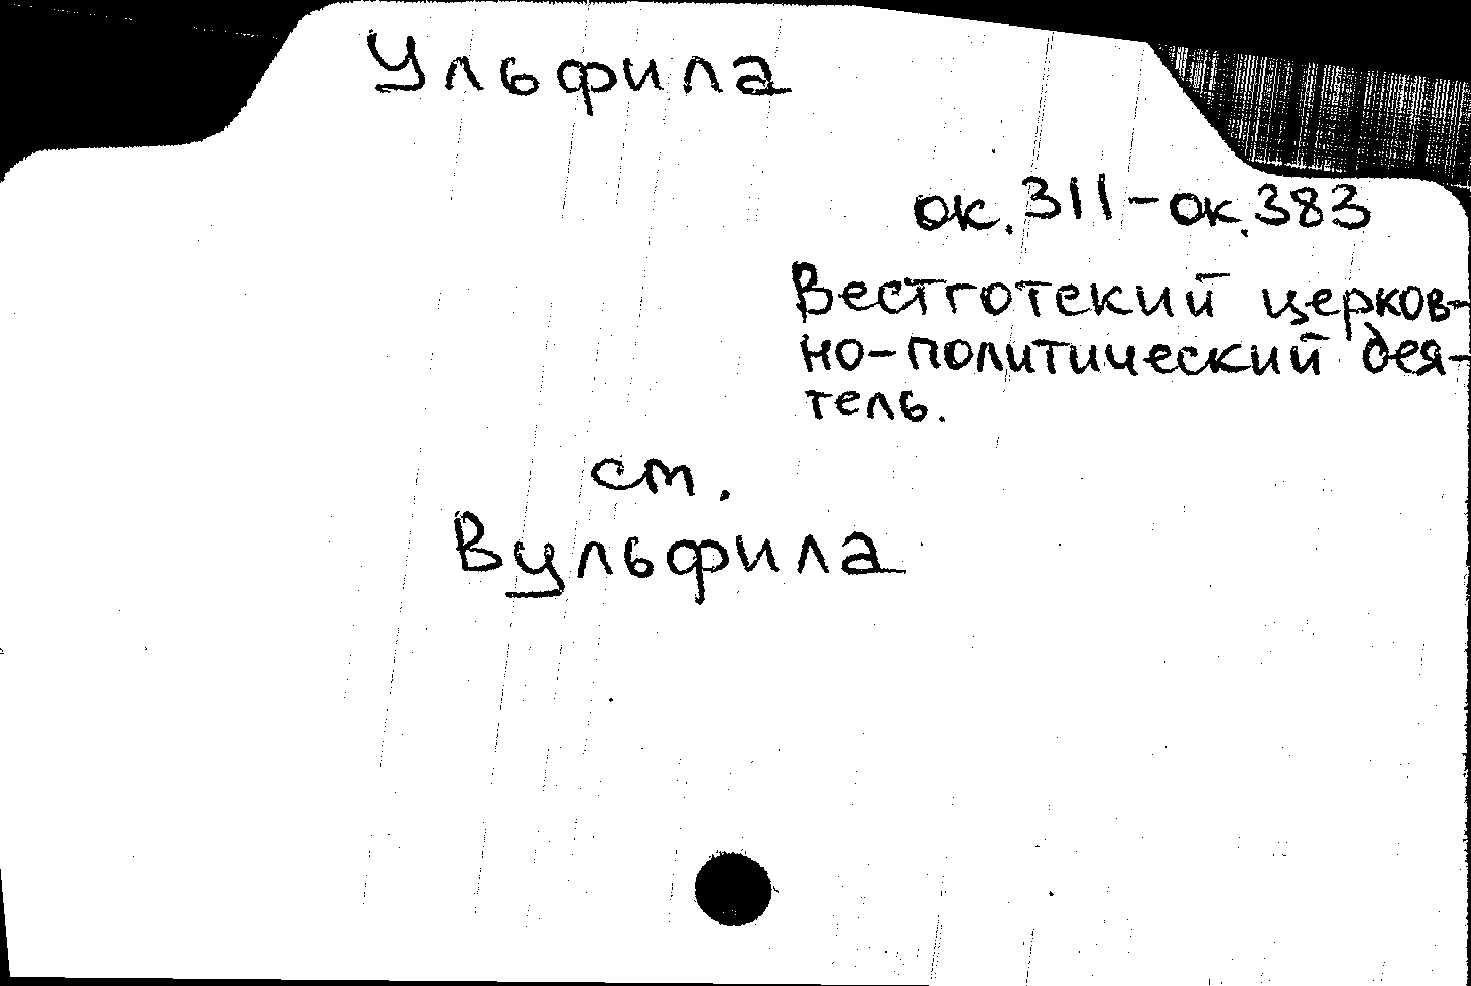 Ульфила
ок. 311-ок. 383
Вестготский церков-
но-политический дея-
тель.
см.
Вульфила